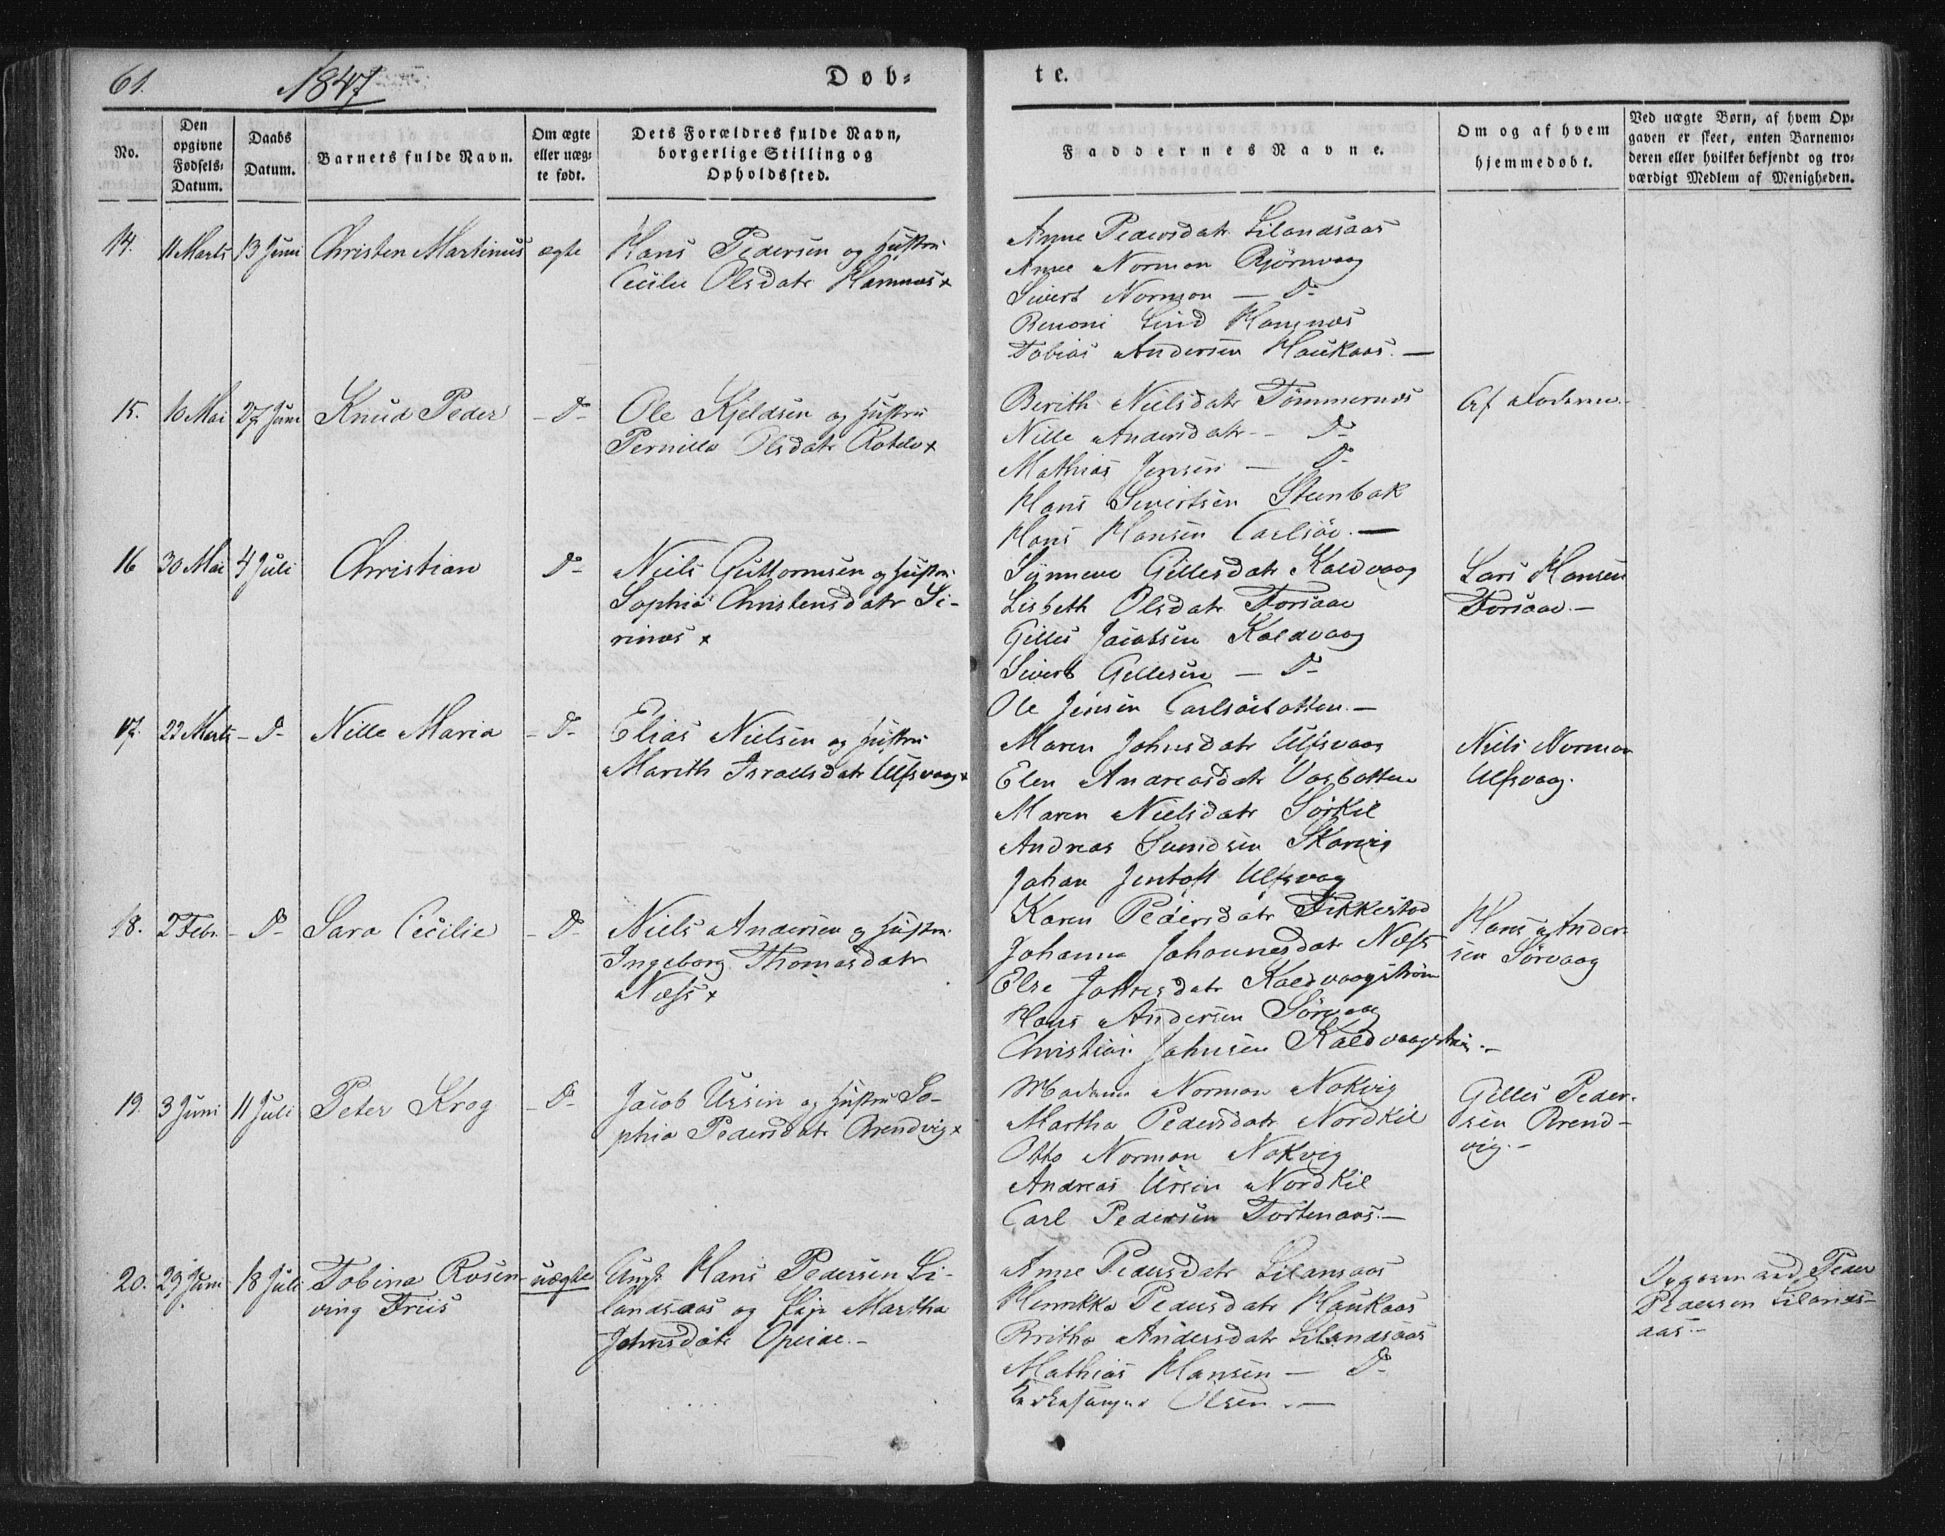 61.
1847
Døb-
te.
No.
Den opgivne Fødsels-Datum.
Daabs Datum.
Barnets fulde Navn.
Om ægte eller uæg-te født.
Dets Forældres fulde Navn, borgerlige Stilling og Opholdssted.
Faddernes Navne.
Om og af hvem hjemmedøbt.
Ved uægte Børn, af hvem Op-gaven er skeet, enten Barnemo-deren eller hvilket bekjendt og tro-værdigt Medlem af Menigheden.
14. 11 Marts 13 Juni Christen Martinus ægte
Hans Pedersen og Hustru
Cecilie Olsdatr Hamnæs x
Anne Pedersdatr Lilandsaas
Anne Norman Bjørnvaag
Sivert Norman — Do-
Benoni Lind Hamnæs
Tobias Andersen Haukaas. —
15. 16 Mai 27 Juni Knud Peder - Do-
Ole Kjeldsen og Hustru
Pernilla Olsdatr Rotelv x
Berith Nielsdatr Tømmernæs
Nille Andersdatr - Do-
Mathias Jensen — Do-
Hans Sivertsen Steenbak
Hans Hansen Carlsøe. —
Af Faderen.-
16 30 Mai 4 Juli Christian Do-
Niels Guttormsen og Hustru
Sophia Christensdatr Si-
rinæs x
Synneve Gillesdatr Kaldvaag
Lisbeth Olsdatr Forsaae
Gilles Jacobsen Kaldvaag
Sivert Gillesen — Do-
Ole Jensen Carlsøebotten. —
Lars Hansen
Forsaae. —
17. 22 Marts - Do- Nille Maria - Do-
Elias Nielsen og Hustru
Marith Israelsdatr Ulfsvaag x
Maren Johnsdatr Ulfsvaag
Elen Andreasdatr Vasbotten
Maren Nielsdatr Sørkil
Andreas Svendsen Skarvig
Johan Jentoft Ulfsvaag
Niels Norman
Ulfsvaag.
18. 2 Febr. - Do- Sara Cecilie - Do-
Niels Andersen og Hustru
Ingeborg Thomasdatr
Næss x
Karen Pedersdatr Fikkestad
Johanna Johannesdatr Næss
Else Johnsdatr Kaldvaagstrøm
Hans Andersen Sørvaag
Christian Johnsen Kaldvaagstrøm. —
Hans Ander-
sen Sørvaag
19. 3 Juni 11 Juli Peter Krog - Do-
Jacob Ursin og Hustru So-
phia Pedersdatr Brendvig x
Madam Norman Nøkvig
Martha Pedersdatr Nordkil
Otto Norman Nøkvig
Andreas Ursin Nordkil
Carl Pedersen Tortenaas. —
Gilles Peder-
sen Brend-
vig. -
20. 29 Juni 18 Juli Tobine Rosen-
ving Friis
uægte
Ungk. Hans Pedersen Li-
landsaas og Pige Martha
Johnsdatr Opeide. —
Anne Pedersdatr Lilansaas
Henrikka Pedersdatr Haukaas
Britha Andersdatr Lilandsaas
Mathias Hansen — Do-
Kirkesanger Olsen. —
Opgaven ved Peder
Pedersen Lilands-
aas. —